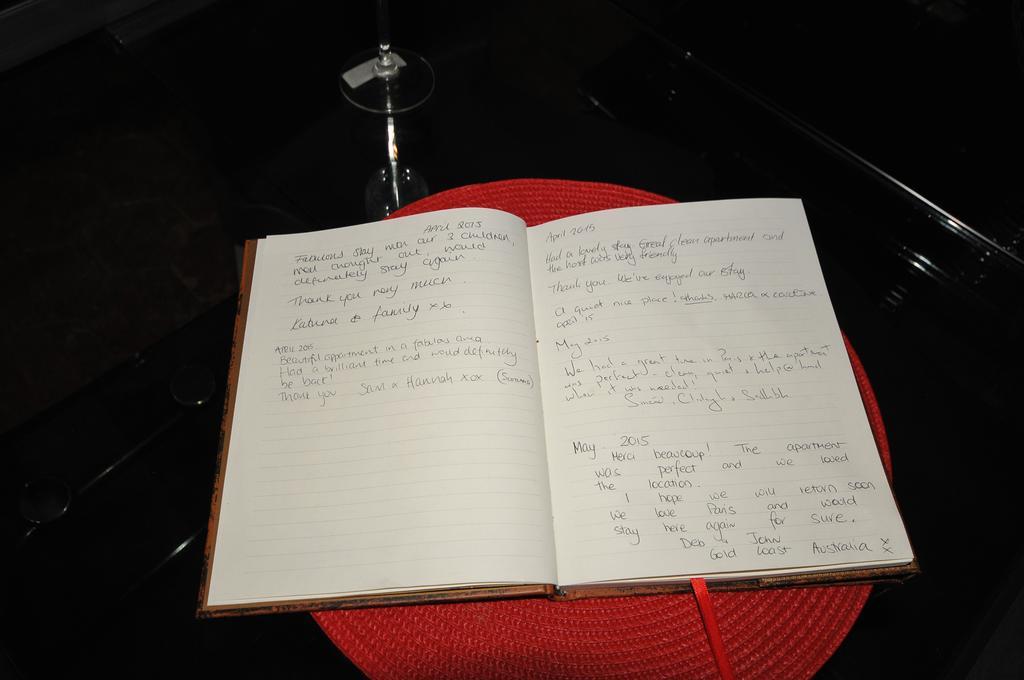 April 2015
Fabulous stay with our 3 children,
well thought out, would
definitely stay again.
Thank you very much.
& family xx.
APRIL 2015.
Beautiful appartment in a fabulous area
Had a brilliant time and would definitely
be back!
Thank you Sam & Hannah xox
April 2015
Had a lovely stay. Great clean apartment and
the host was very friendly
Thank you. We've enjoyed our stay.
a quiet nice place! thanks. MARCO & CAROLINE
april '15
May 2015
We had a great time in Paris & the apartment
was perfect - clean, quiet & help @ hand
when it was needed!
May 2015
Merci beaucoup! The apartment
was perfect and we loved
the location.
I hope we will return soon
we love Paris and would
stay here again for sure.
Deb & John
Gold Coast Australia xx